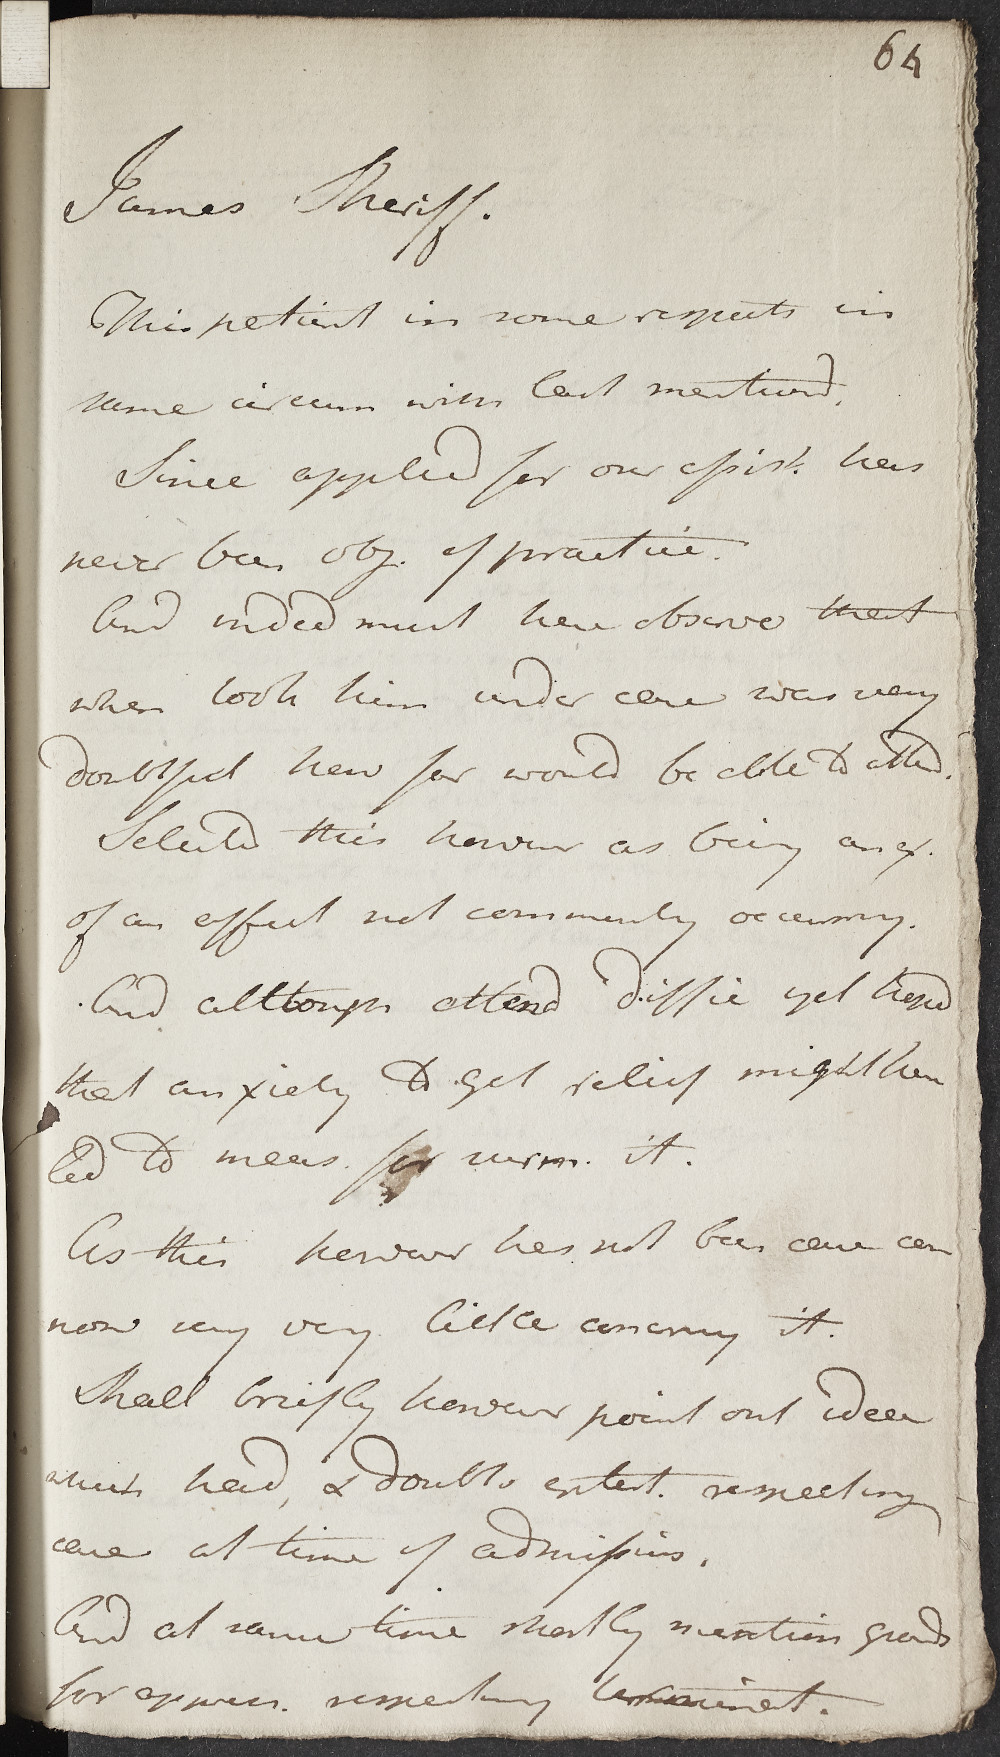 64
James Sheriff.
This patient in some respects in
same circum with last mentiond.
Since applied for our assist. has
never been obj. of practice.
And indeed must here observe that
when took him under care was very
doubtful how far would be able to attend.
Selected this however as being an ex.
of an effect not commonly occurring.
And altho attend diffic yet hoped
that anxiety to get relief might have
led to meas. for it.
As this however has not been case can
now say very little concerning it.
Shall briefly however point out idea
which had, & doubts entert. respecting
case at time of admission.
And at same time shortly mention grounds
for respecting terminat.